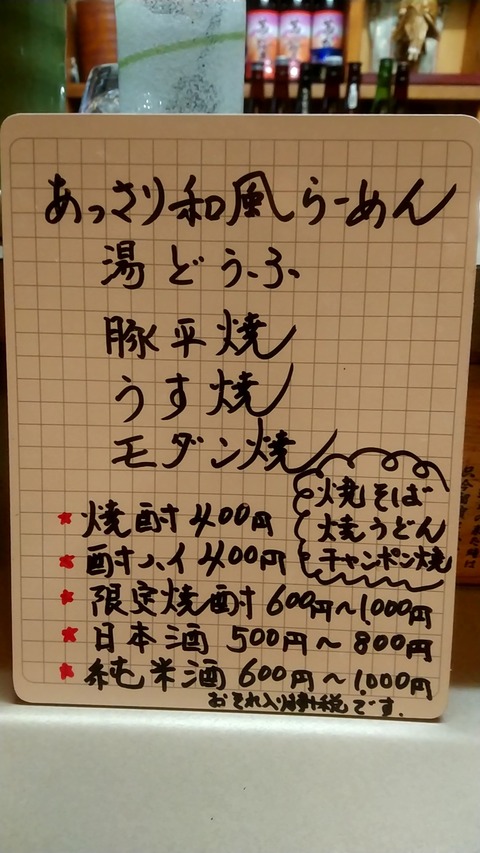 あっさり和風らーめん
湯どうふ
豚平焼
うす焼
モダン焼
焼そば
焼うどん
チャンポン焼
★焼酎 400円
★酎ハイ 400円
★限定焼酎 600円～1,000円
★日本酒 500円～800円
★純米酒 600円～1,000円
おそれ入りますが外税です。